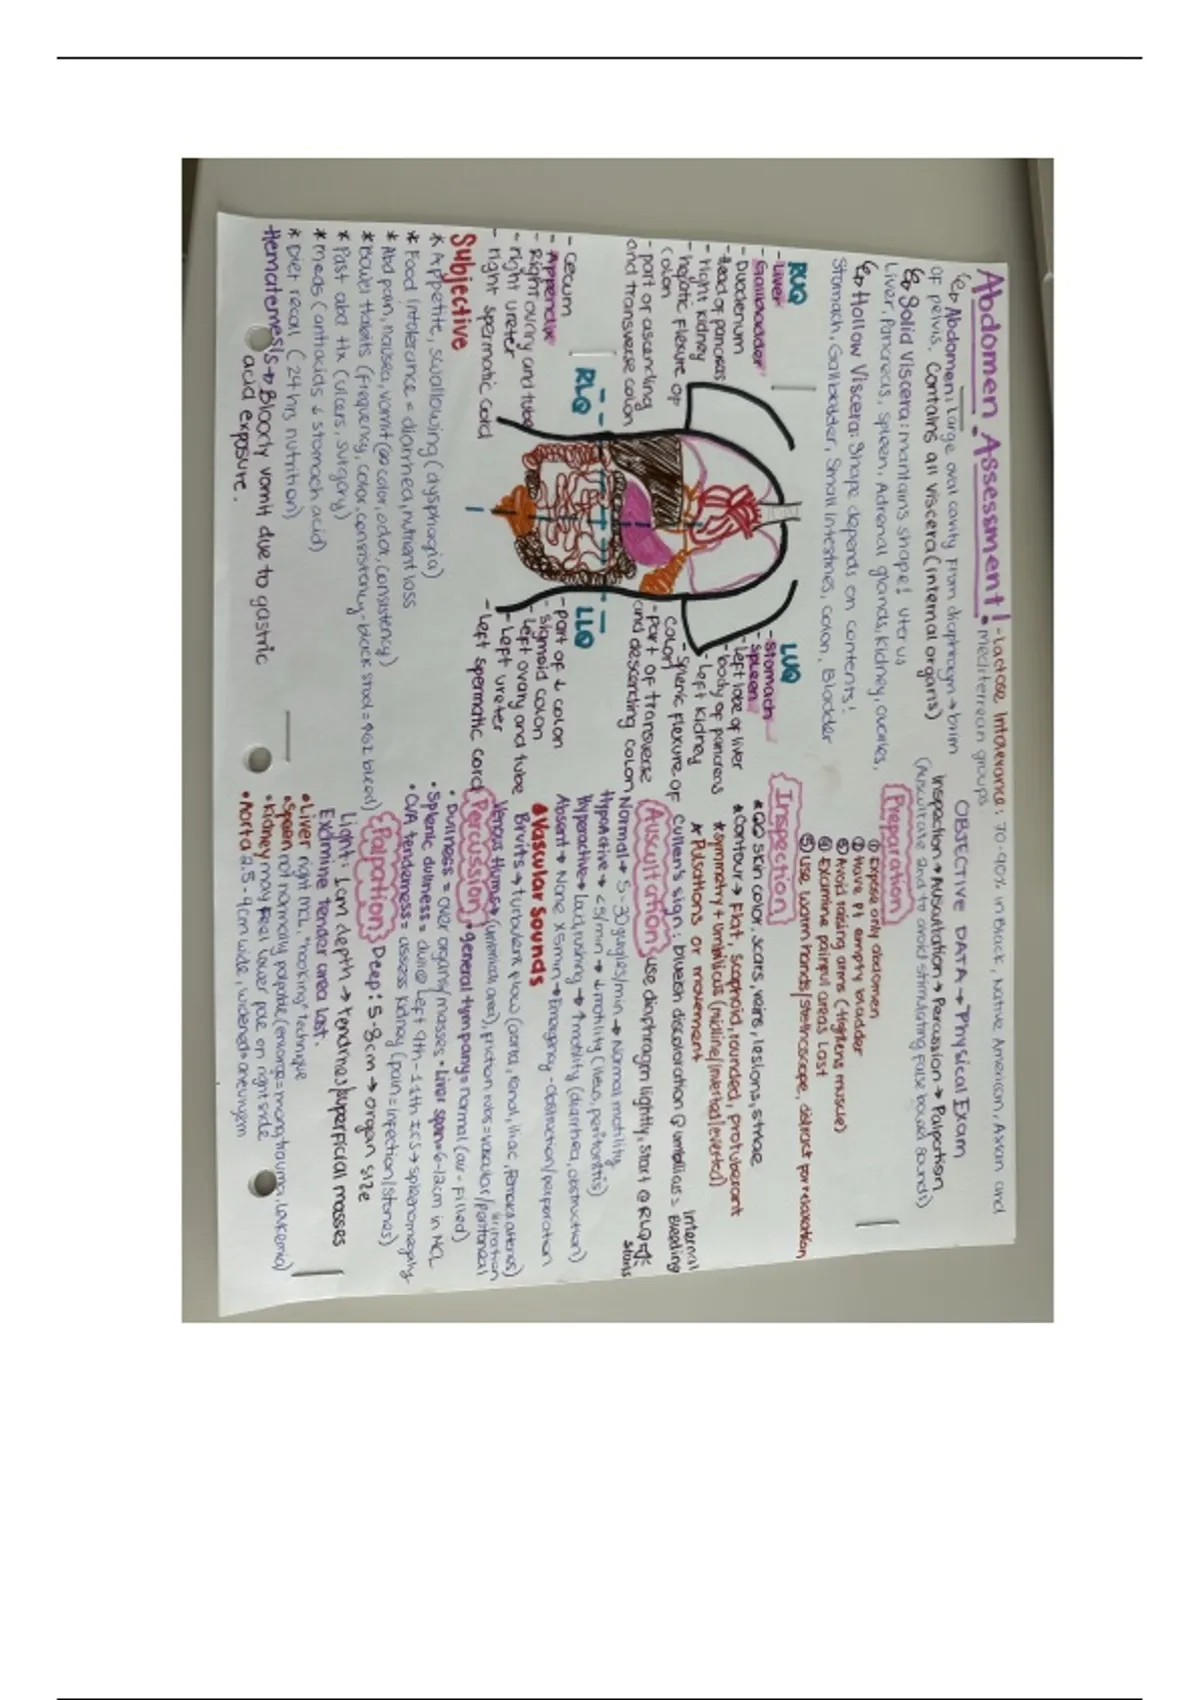 Abdomen Assessment!
- Lactose Intolerance: 70-90% in Black, Native American, Asian and
mediterrean groups
Abdomen: large oval cavity from diaphragm → brim
of pelvis. Contains all viscera (internal organs)
Solid Viscera: mantains shape! uterus
Liver, Pancreas, Spleen, Adrenal glands, Kidney, ovaries,
Hollow Viscera: Shape depends on contents!
Stomach, Gallbladder, Small Intestines, colon, Bladder
RUQ
- Liver
- Gallbladder
- Duodenum
- Head of pancreas
- right kidney
- hepatic flexure of
colon
- part of ascending
and transverse colon
LUQ
- Stomach
- Spleen
- Left lobe of liver
- body of pancreas
- Left kidney
- Splenic flexure of
colon
- part of transverse
and descending colon
RLQ
- cecum
- Appendix
- Right ovary and tube
- right ureter
- right spermatic cord
LLQ
- part of ↓ colon
- sigmoid colon
- left ovary and tube
- Left ureter
- Left spermatic cord
Subjective
* Appetite, swallowing (dysphagia)
* Food intolerance = diarrhea, nutrient loss
* Abd pain, nausea, vomit (color, odor, consistency)
* Bowel Habits (Frequency, color, consistency-black stool = GI bleed)
* Past abd Hx (ulcers, surgery)
* meds (antacids ↓ stomach acid)
* Diet recall (24 hrs nutrition)
Hematemesis → Bloody vomit due to gastric
acid exposure.
OBJECTIVE DATA → Physical Exam
Inspection → Auscultation → Percussion → Palpation
(Auscultate 2nd to avoid stimulating false bowel sounds)
Preparation
① Expose only abdomen
② Have pt empty bladder
③ Avoid raising arms (tightens muscle)
④ Examine painful areas Last
⑤ Use warm hands/stethoscope, distract for relaxation
Inspection
* skin color, scars, veins, lesions, striae
* Contour → Flat, Scaphoid, rounded, protuberant
* symmetry + umbilicus (midline/inverted/everted)
* Pulsations or movement
Cullen's sign: blueish discoloration @ umbilicus = Internal Bleeding
Auscultation
use diaphragm lightly, start @ RLQ
Normal → 5-30 gurgles/min → Normal motility
Hypoactive → <5/min → ↓ motility (ileus, peritonitis)
Hyperactive → Loud, rushing → ↑ motility (diarrhea, obstruction)
Absent → None x5min → Emergency - obstruction/perforation
Vascular Sounds
Bruits → turbulent flow (aorta, renal, iliac, Femoral arteries)
Venous Hums → (umbilical area), friction rubs = vascular/peritoneal
Percussion
• general tympany = normal (air-filled)
• Dullness = over organs/masses • Liver span = 6-12cm in MCL
• Splenic dullness = dull @ left 9th-11th ICS → splenomegaly
• CVA tenderness = assess kidney (pain = infection/stones)
Palpation
Deep: 5-8cm → organ size
Light: 1cm depth → tendrnes/superficial masses
Examine tender area last.
• Liver right MCL, "hooking" technique
• Spleen not normally palpable (enlarge = mono, trauma, leukemia)
• Kidney may feel lower pole on right side
• Aorta 2.5-4cm wide, widened = aneurysm